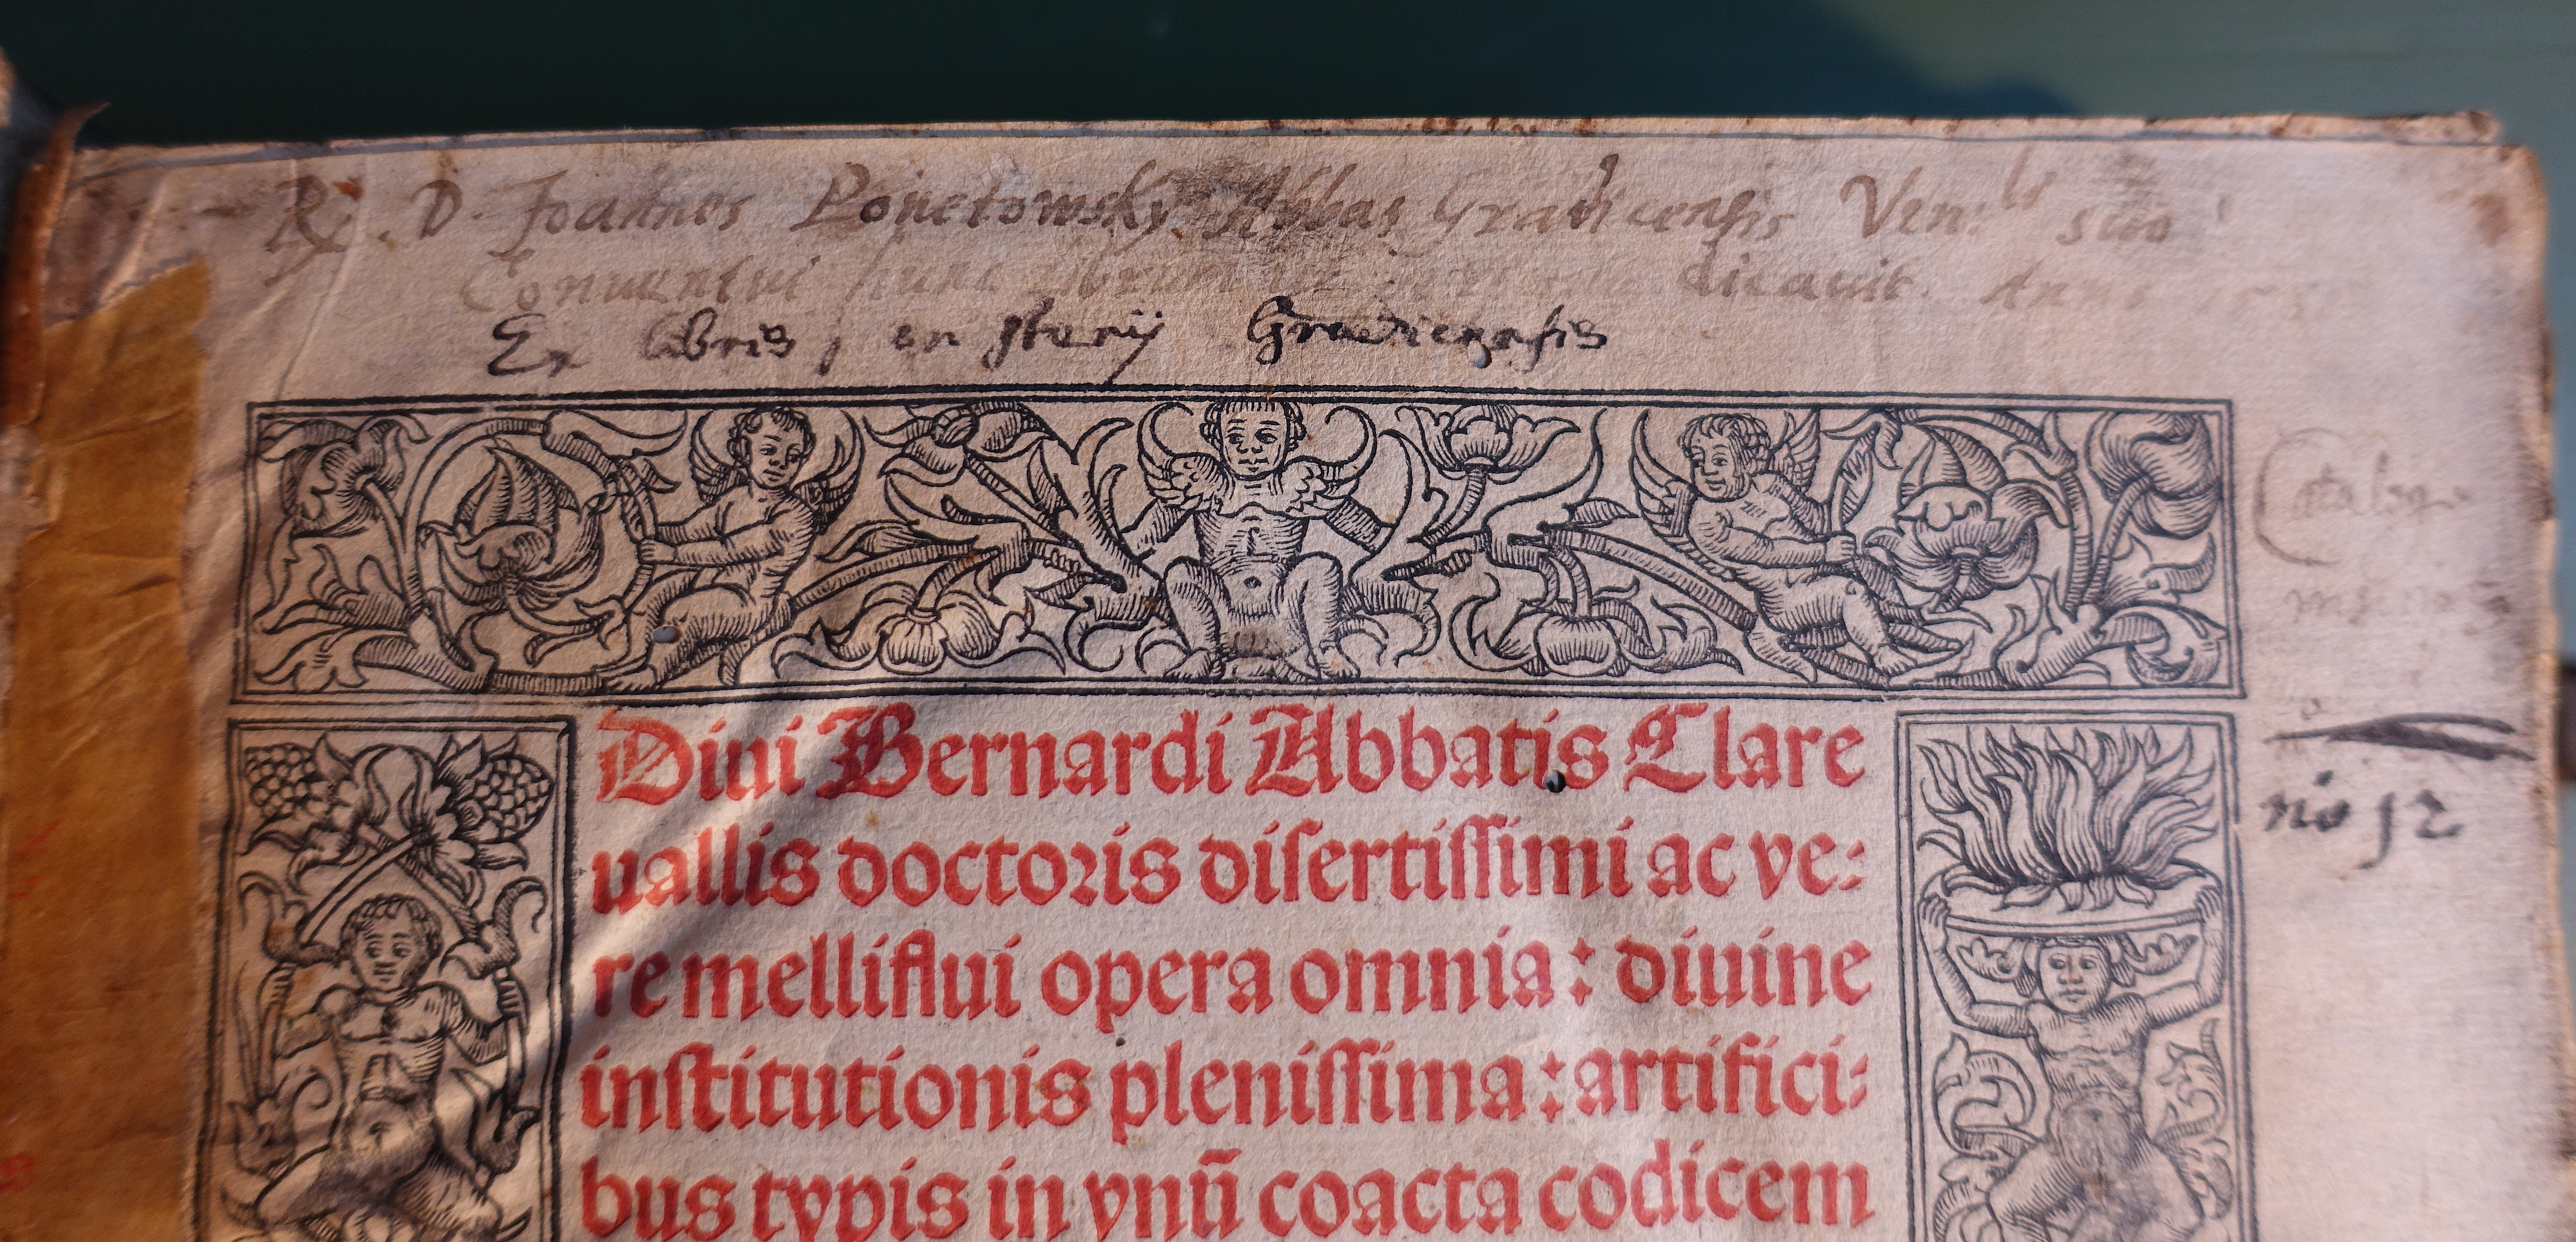 R. D. Joannes Ponetowsky Abbas Gradicensis Ven: suo
Conventui hunc dicavit. Anno
Ex libris Gradicensis
Diui Bernardi Abbatis Clare
uallis doctoris disertissimi ac ve:
re melliflui opera omnia: diuine
institutionis plenissima: artifici:
bus typis in vnū coacta codicem
no 12